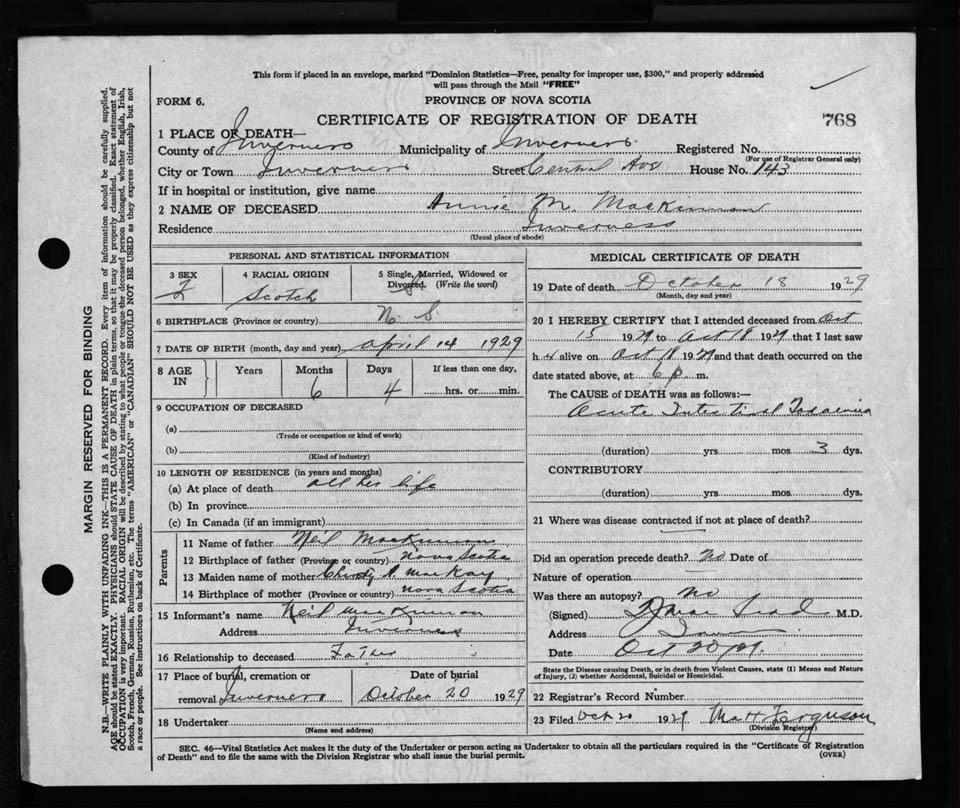 This form if placed in an envelope, marked "Dominion Statistics—Free, penalty for improper use, $300," and properly addressed
will pass through the Mail "FREE"
FORM 6.
PROVINCE OF NOVA SCOTIA
CERTIFICATE OF REGISTRATION OF DEATH
768
1 PLACE OF DEATH—
County of Inverness Municipality of Inverness Registered No.
(For use of Registrar General only)
City or Town Inverness Street Central Ave House No. 143
If in hospital or institution, give name
2 NAME OF DECEASED Annie M. MacKinnon
Residence Inverness
(Usual place of abode)
PERSONAL AND STATISTICAL INFORMATION
3 SEX 4 RACIAL ORIGIN 5 Single, Married, Widowed or
Divorced. (Write the word)
F Scotch S
6 BIRTHPLACE (Province or country) N. S.
7 DATE OF BIRTH (month, day and year) April 14 1929
8 AGE IN Years Months Days If less than one day,
6 4 hrs. or min.
9 OCCUPATION OF DECEASED
(a)
(Trade or occupation or kind of work)
(b)
(Kind of industry)
10 LENGTH OF RESIDENCE (in years and months)
(a) At place of death all her life
(b) In province
(c) In Canada (if an immigrant)
Parents
11 Name of father Neil MacKinnon
12 Birthplace of father (Province or country) Nova Scotia
13 Maiden name of mother Christy A. MacKay
14 Birthplace of mother (Province or country) Nova Scotia
15 Informant's name Neil MacKinnon
Address Inverness
16 Relationship to deceased Father
17 Place of burial, cremation or Date of burial
removal Inverness October 20 1929
18 Undertaker
(Name and address)
MEDICAL CERTIFICATE OF DEATH
19 Date of death October 18 1929
(Month, day and year)
20 I HEREBY CERTIFY that I attended deceased from Oct
15 1929 to Oct 18 1929 that I last saw
h alive on Oct 18 1929 and that death occurred on
date stated above, at 6 p. m.
The CAUSE of DEATH was as follows:—
Acute Intestinal Toxaemia
(duration) yrs. mos 3 dys.
CONTRIBUTORY
(duration) yrs. mos. dys.
21 Where was disease contracted if not at place of death?
Did an operation precede death? No Date of
Nature of operation
Was there an autopsy? No
(Signed) M.D.
Address
Date Oct 20/29.
State the Disease causing Death, or in death from Violent Causes, state (1) Means and Nature
of Injury, (2) whether Accidental, Suicidal or Homicidal.
22 Registrar's Record Number
23 Filed Oct 20 1929 Matt Ferguson
(Division Registrar)
SEC. 46—Vital Statistics Act makes it the duty of the Undertaker or person acting as Undertaker to obtain all the particulars required in the "Certificate of Registration
of Death" and to file the same with the Division Registrar who shall issue the burial permit.
(OVER)
MARGIN RESERVED FOR BINDING
N.B.—WRITE PLAINLY WITH UNFADING INK—THIS IS A PERMANENT RECORD. Every item of information should be carefully supplied.
AGE should be stated EXACTLY. PHYSICIANS should STATE CAUSE OF DEATH in plain terms, so that it may be properly classified. Exact statement of
OCCUPATION is very important. RACIAL ORIGIN will be described by stating to what people or tongue the deceased person belonged, whether English, Irish,
Scotch, French, German, Russian, Ruthenian, etc. The terms "AMERICAN" or "CANADIAN" SHOULD NOT BE USED as they express citizenship but not
a race or people. See instructions on back of Certificate.